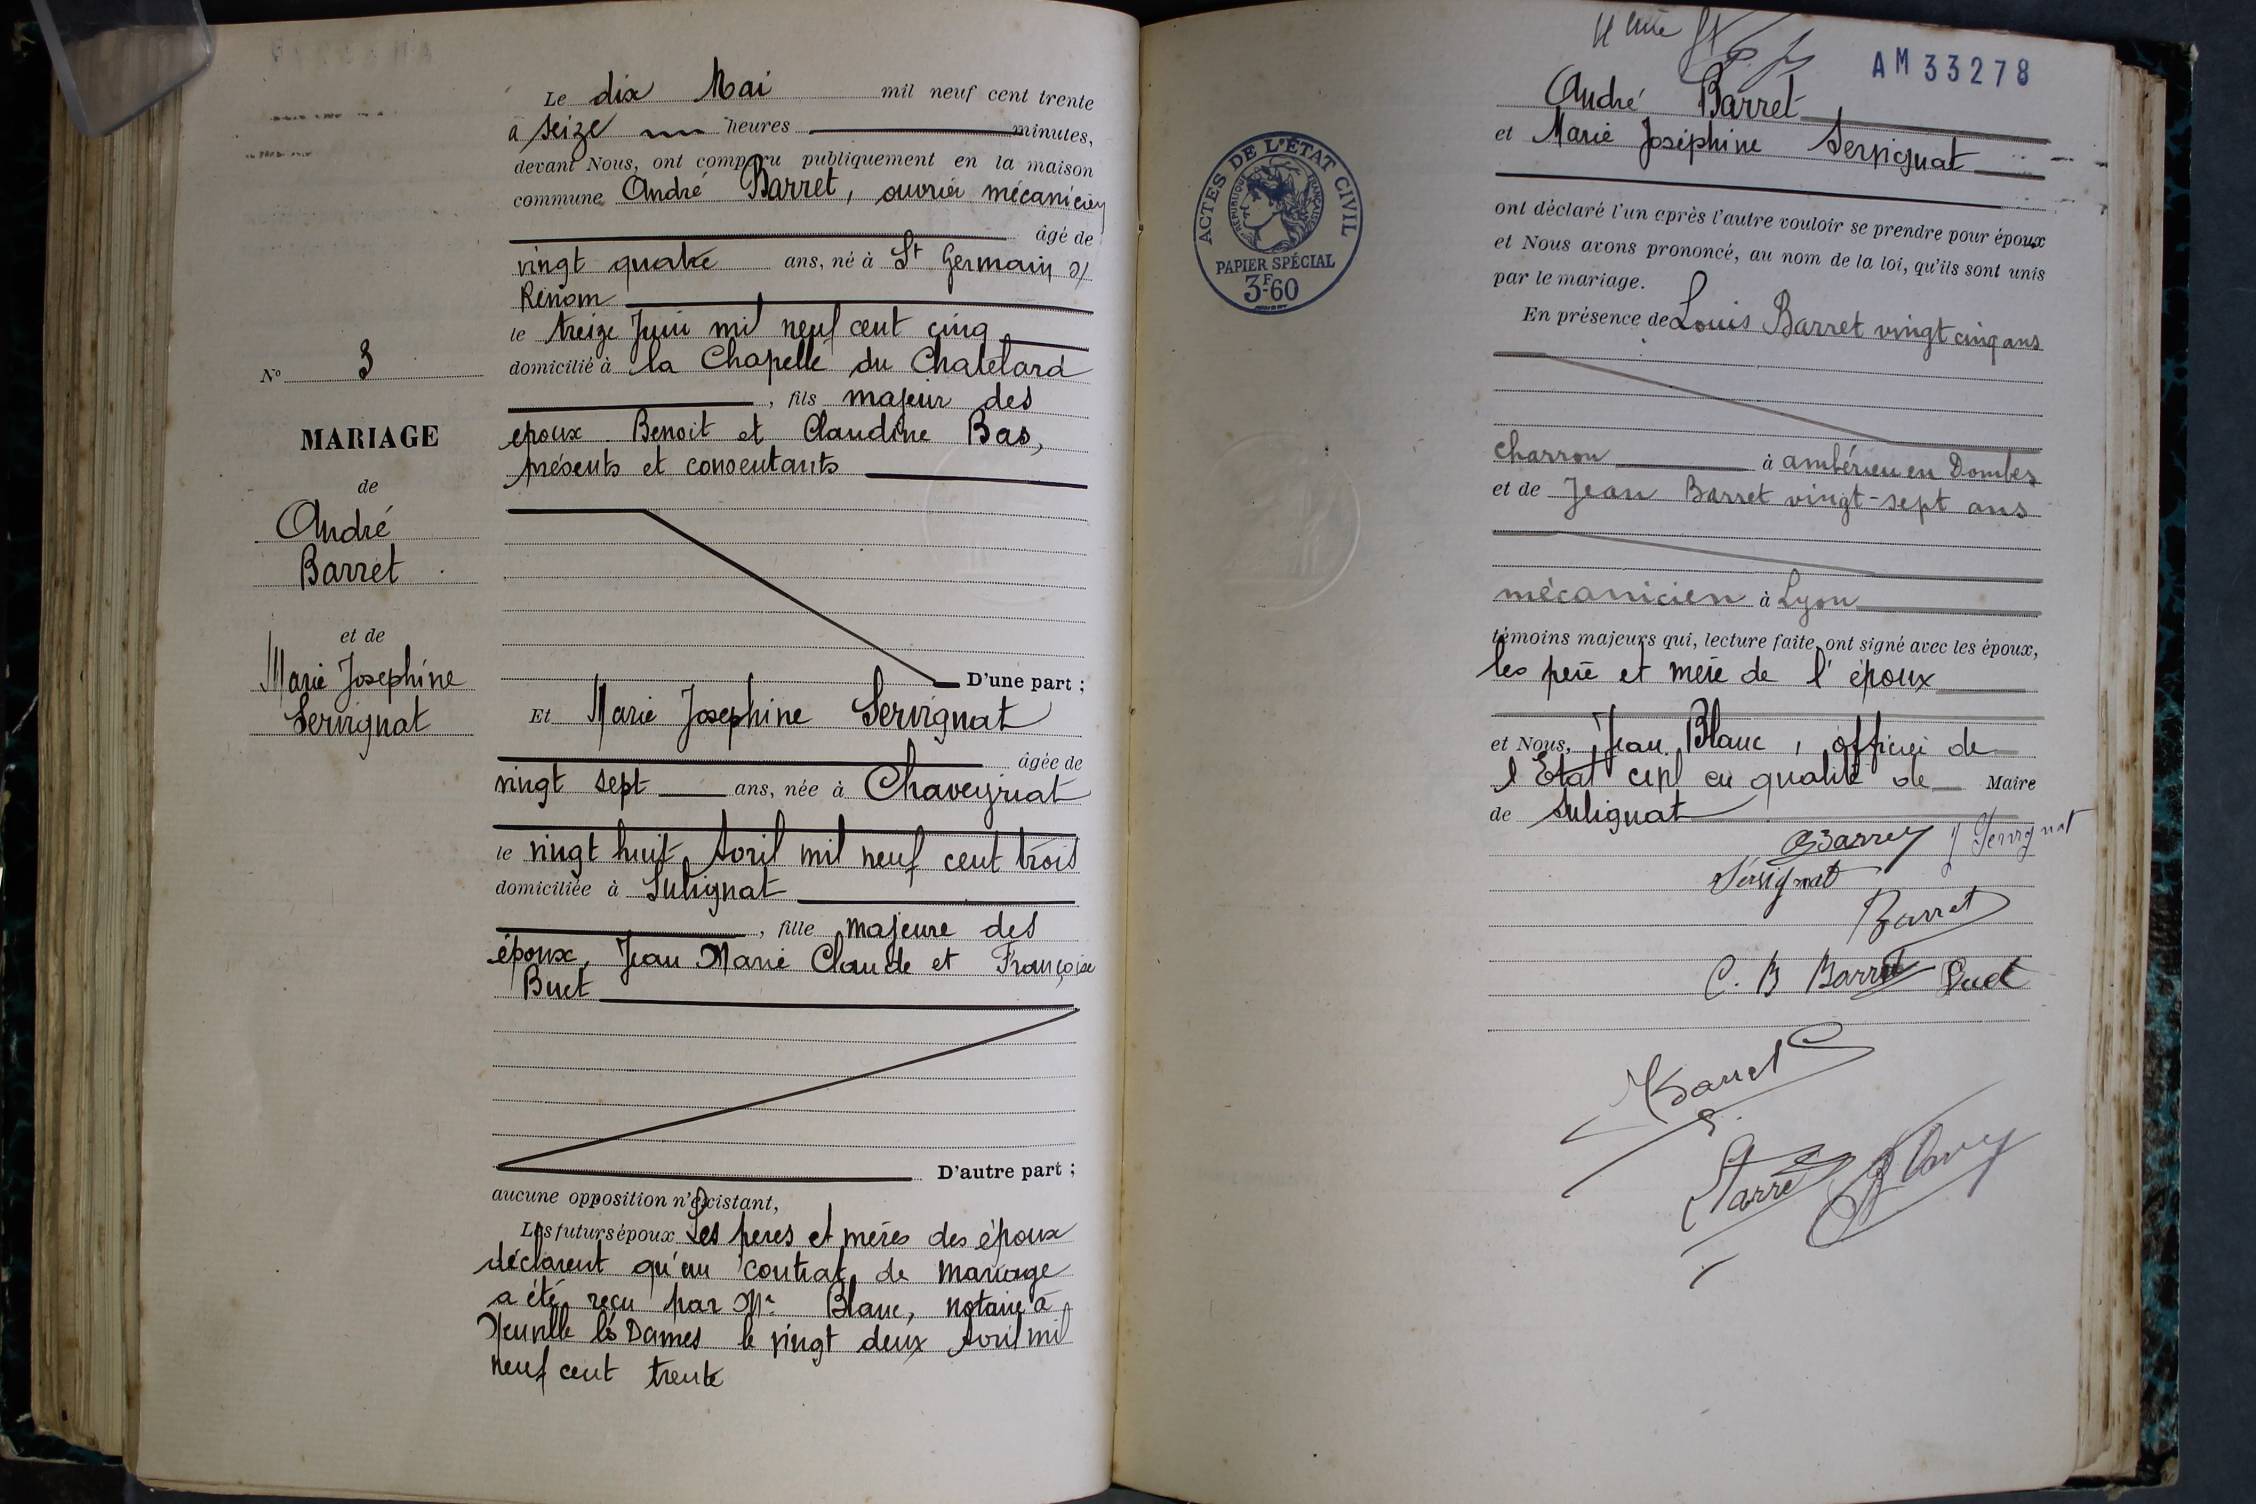 Le dix Mai mil neuf cent trente
à seize heures minutes,
devant Nous, ont comparu publiquement en la maison
commune André Barret, ouvrier mécanicien
âgé de
vingt quatre ans, né à St Germain s/
Renom
le treize Juin mil neuf cent cinq
domicilié à la Chapelle du Chatelard
, fils majeur des
epoux Benoit et Claudine Bas,
présents et consentants
D'une part ;
Et Marie Josephine Servignat
âgée de
vingt sept ans, née à Chaveyriat
le vingt huit Avril mil neuf cent trois
domiciliée à Sulignat
, fille majeure des
époux, Jean Marie Claude et Françoise
Buet
D'autre part ;
aucune opposition n'existant,
Les futurs époux Les peres et mères des époux
déclarent qu'un contrat de mariage
a été reçu par Me Blanc, notaire à
Neuville les Dames le vingt deux Avril mil
neuf cent trente
No 3
MARIAGE
de
André
Barret
et de
Marie Josephine
Servignat
AM 33278
André Barret
et Marie Joséphine Servignat
ont déclaré l'un après l'autre vouloir se prendre pour époux
et Nous avons prononcé, au nom de la loi, qu'ils sont unis
par le mariage.
En présence de Louis Barret vingt cinq ans
charron à ambérieu en Dombes
et de Jean Barret vingt-sept ans
mécanicien à Lyon
témoins majeurs qui, lecture faite, ont signé avec les époux,
les père et mère de l'époux
et Nous, Jean Blanc, officier de
l'Etat civil en qualité de Maire
de Sulignat
ABarret J Servignat
Servignat
Barret
C. B Barret Buet
Barret
Barret Blanc
ACTES DE L'ÉTAT CIVIL
RÉPUBLIQUE FRANÇAISE
PAPIER SPÉCIAL
3F.60